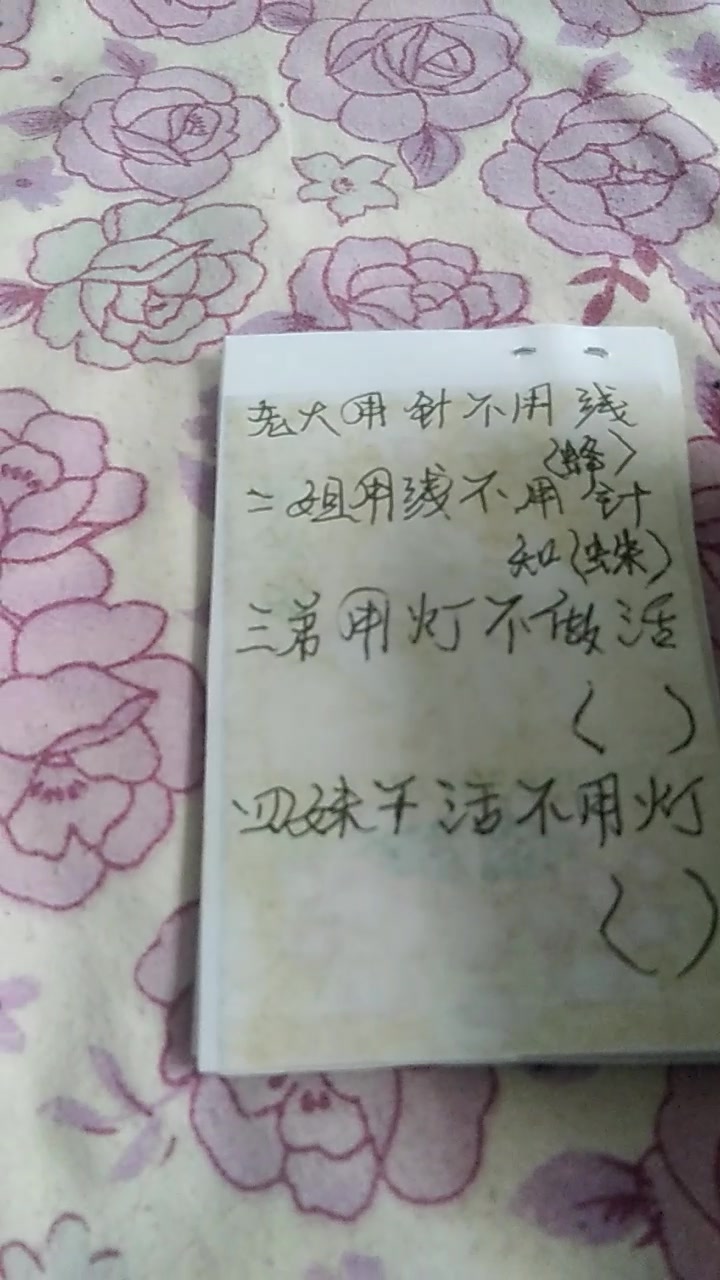 老大用针不用线
(蜂)
二姐用线不用针
知(蛛)
三弟用灯不做活
( )
四妹干活不用灯
( )